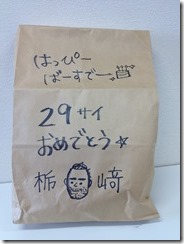 はっぴー
ばーすでー
29サイ
おめでとう☆
栃崎